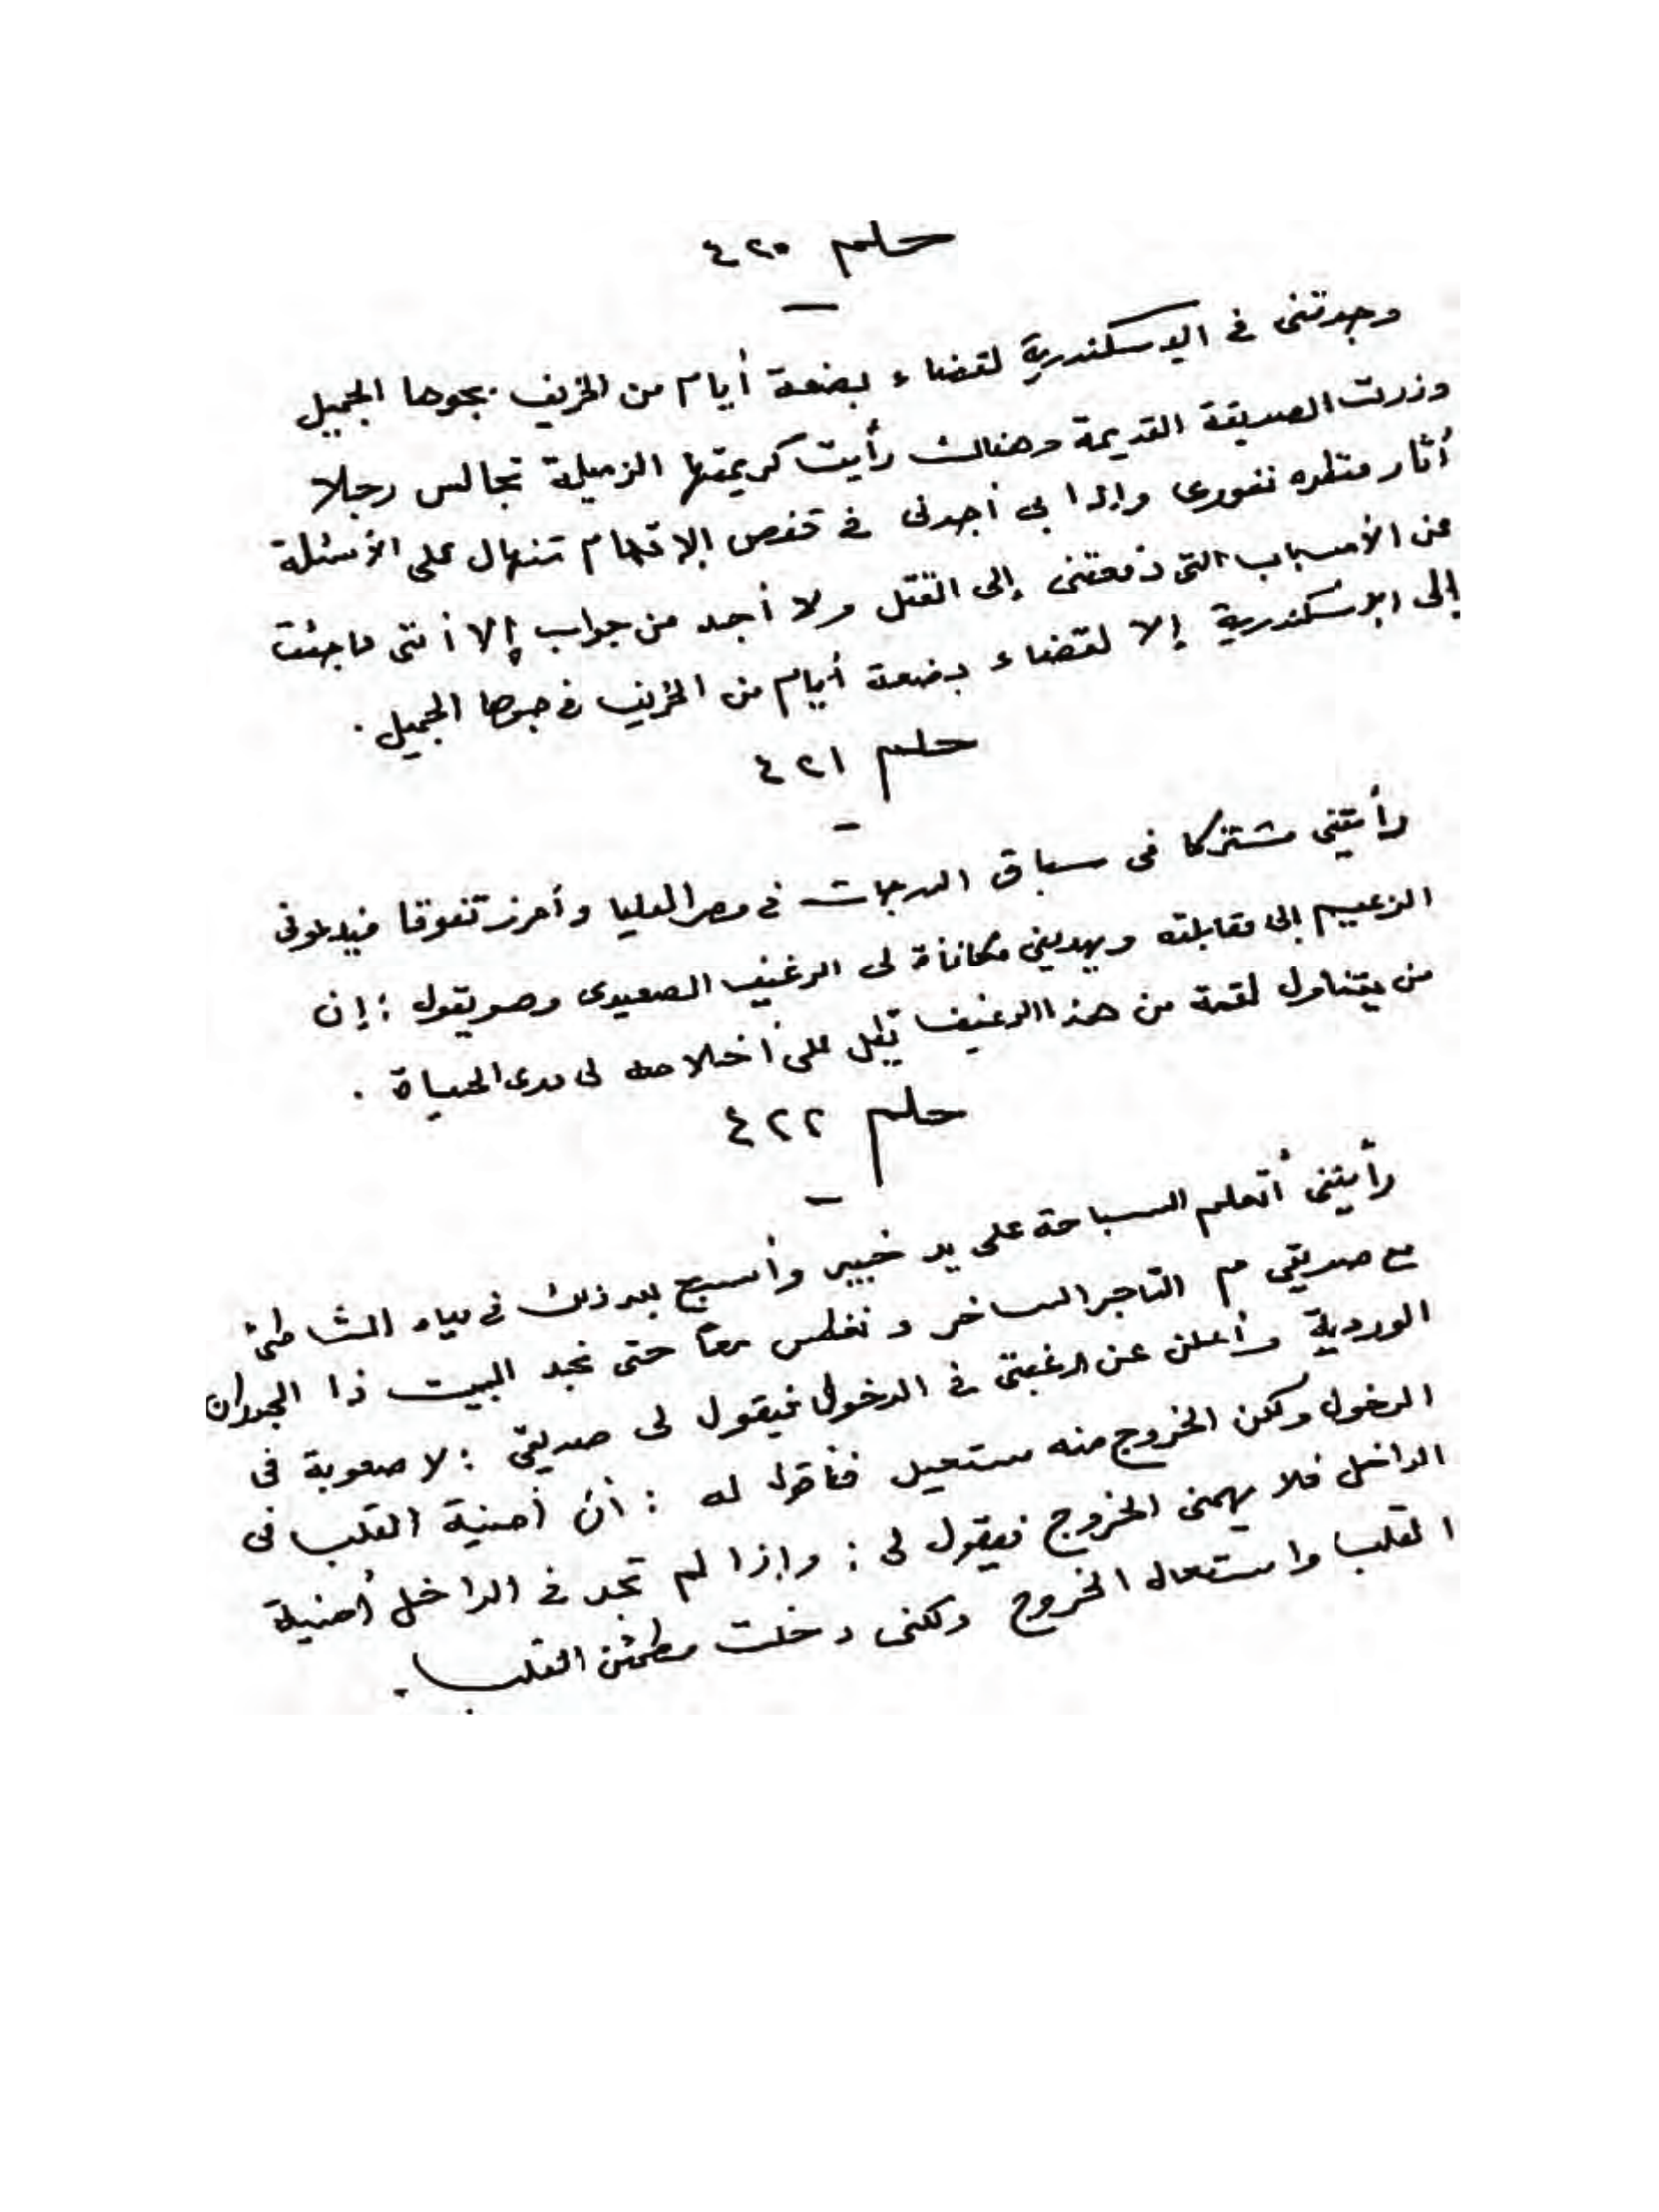 حلم ٤٢٠
وجدتنى فى الإسكندرية لقضاء بضعة أيام من الخريف بجوها الجميل
وزرت الصديقة القديمة وهنالك رأيت كريمتها الزميلة تجالس رجلا
أثار منظره نفورى وإذا بى أجدنى فى قفص الإتهام تنهال على الأسئلة
عن الأسباب التى دفعتنى إلى القتل ولا أجد من جواب إلا أننى ماجئت
إلى الإسكندرية إلا لقضاء بضعة أيام من الخريف فى جوها الجميل .
حلم ٤٢١
رأيتنى مشتركا فى سباق الدرجات فى مصر العليا وأحرز تفوقا فيدعونى
الزعيم إلى مقابلته ويهدينى مكافأة لى الرغيف الصعيدى وهو يقول : إن
من يتناول لقمة من هذا الرغيف يظل على أخلاصه لى مدى الحياة .
حلم ٤٢٢
رأيتنى أتعلم السباحة على يد خبير وأسبح بعد ذلك فى مياه الشاطئ
مع صديقى م التاجر الساخر ونغطس معا حتى نجد البيت ذا الجدران
الوردية وأعلن عن رغبتى فى الدخول فيقول لى صديقى : لا صعوبة فى
الدخول ولكن الخروج منه مستحيل فأقول له : أن أمنية القلب فى
الداخل فلا يهمنى الخروج فيقول لى : وإذا لم تجد فى الداخل أمنية
القلب واستحال الخروج ولكنى دخلت مطمئن القلب .